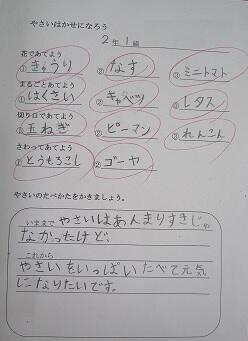 やさいはかせになろう
2年1組
花であてよう
①きゅうり ②なす ③ミニトマト
まるごとあてよう
①はくさい ②キャベツ ③レタス
切り口であてよう
①玉ねぎ ②ピーマン ③れんこん
さわってあてよう
①とうもろこし ②ゴーヤ
やさいのたべかたをかきましょう。
いままで やさいはあんまりすきじゃ
なかったけど、
これから
やさいをいっぱいたべて元気
になりたいです。